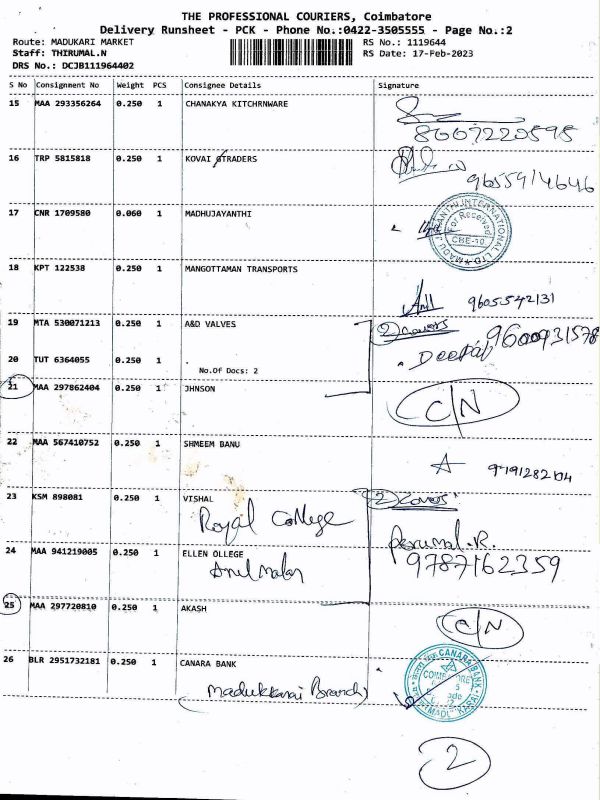 THE PROFESSIONAL COURIERS, Coimbatore
Delivery Runsheet - PCK - Phone No.:0422-3505555 - Page No.:2
Route: MADUKARI MARKET RS No.: 1119644
Staff: THIRUMAL.N RS Date: 17-Feb-2023
DRS No.: DCJB111964402
S No Consignment No Weight PCS Consignee Details Signature
15 MAA 293356264 0.250 1 CHANAKYA KITCHRNWARE
8667220595
16 TRP 5815818 0.250 1 KOVAI TRADERS
9655914646
17 CNR 1709580 0.060 1 MADHUJAYANTHI
MADHU JAYANTHI INTERNATIONAL LTD
For Received
CBE-10
18 KPT 122538 0.250 1 MANGOTTAMAN TRANSPORTS
Anil 9605542131
19 MTA 530071213 0.250 1 A&D VALVES 2 Covers
9600931578
20 TUT 6364055 0.250 1 Deepak
No.Of Docs: 2
21 MAA 297862404 0.250 1 JHNSON
C/N
22 MAA 567410752 0.250 1 SHMEEM BANU
23 KSM 898081 0.250 1 VISHAL 2 Covers
Royal College
Perumal.R.
24 MAA 941219005 0.250 1 ELLEN OLLEGE
9787162359
25 MAA 297720810 0.250 1 AKASH
C/N
26 BLR 2951732181 0.250 1 CANARA BANK
CANARA BANK
(Madukkarai Branch)
2